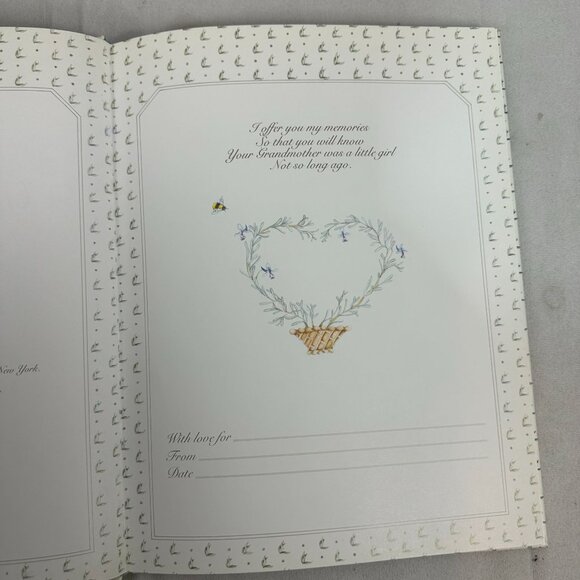 New York.
I offer you my memories
So that you will know
Your Grandmother was a little girl
Not so long ago.
With love for
From
Date